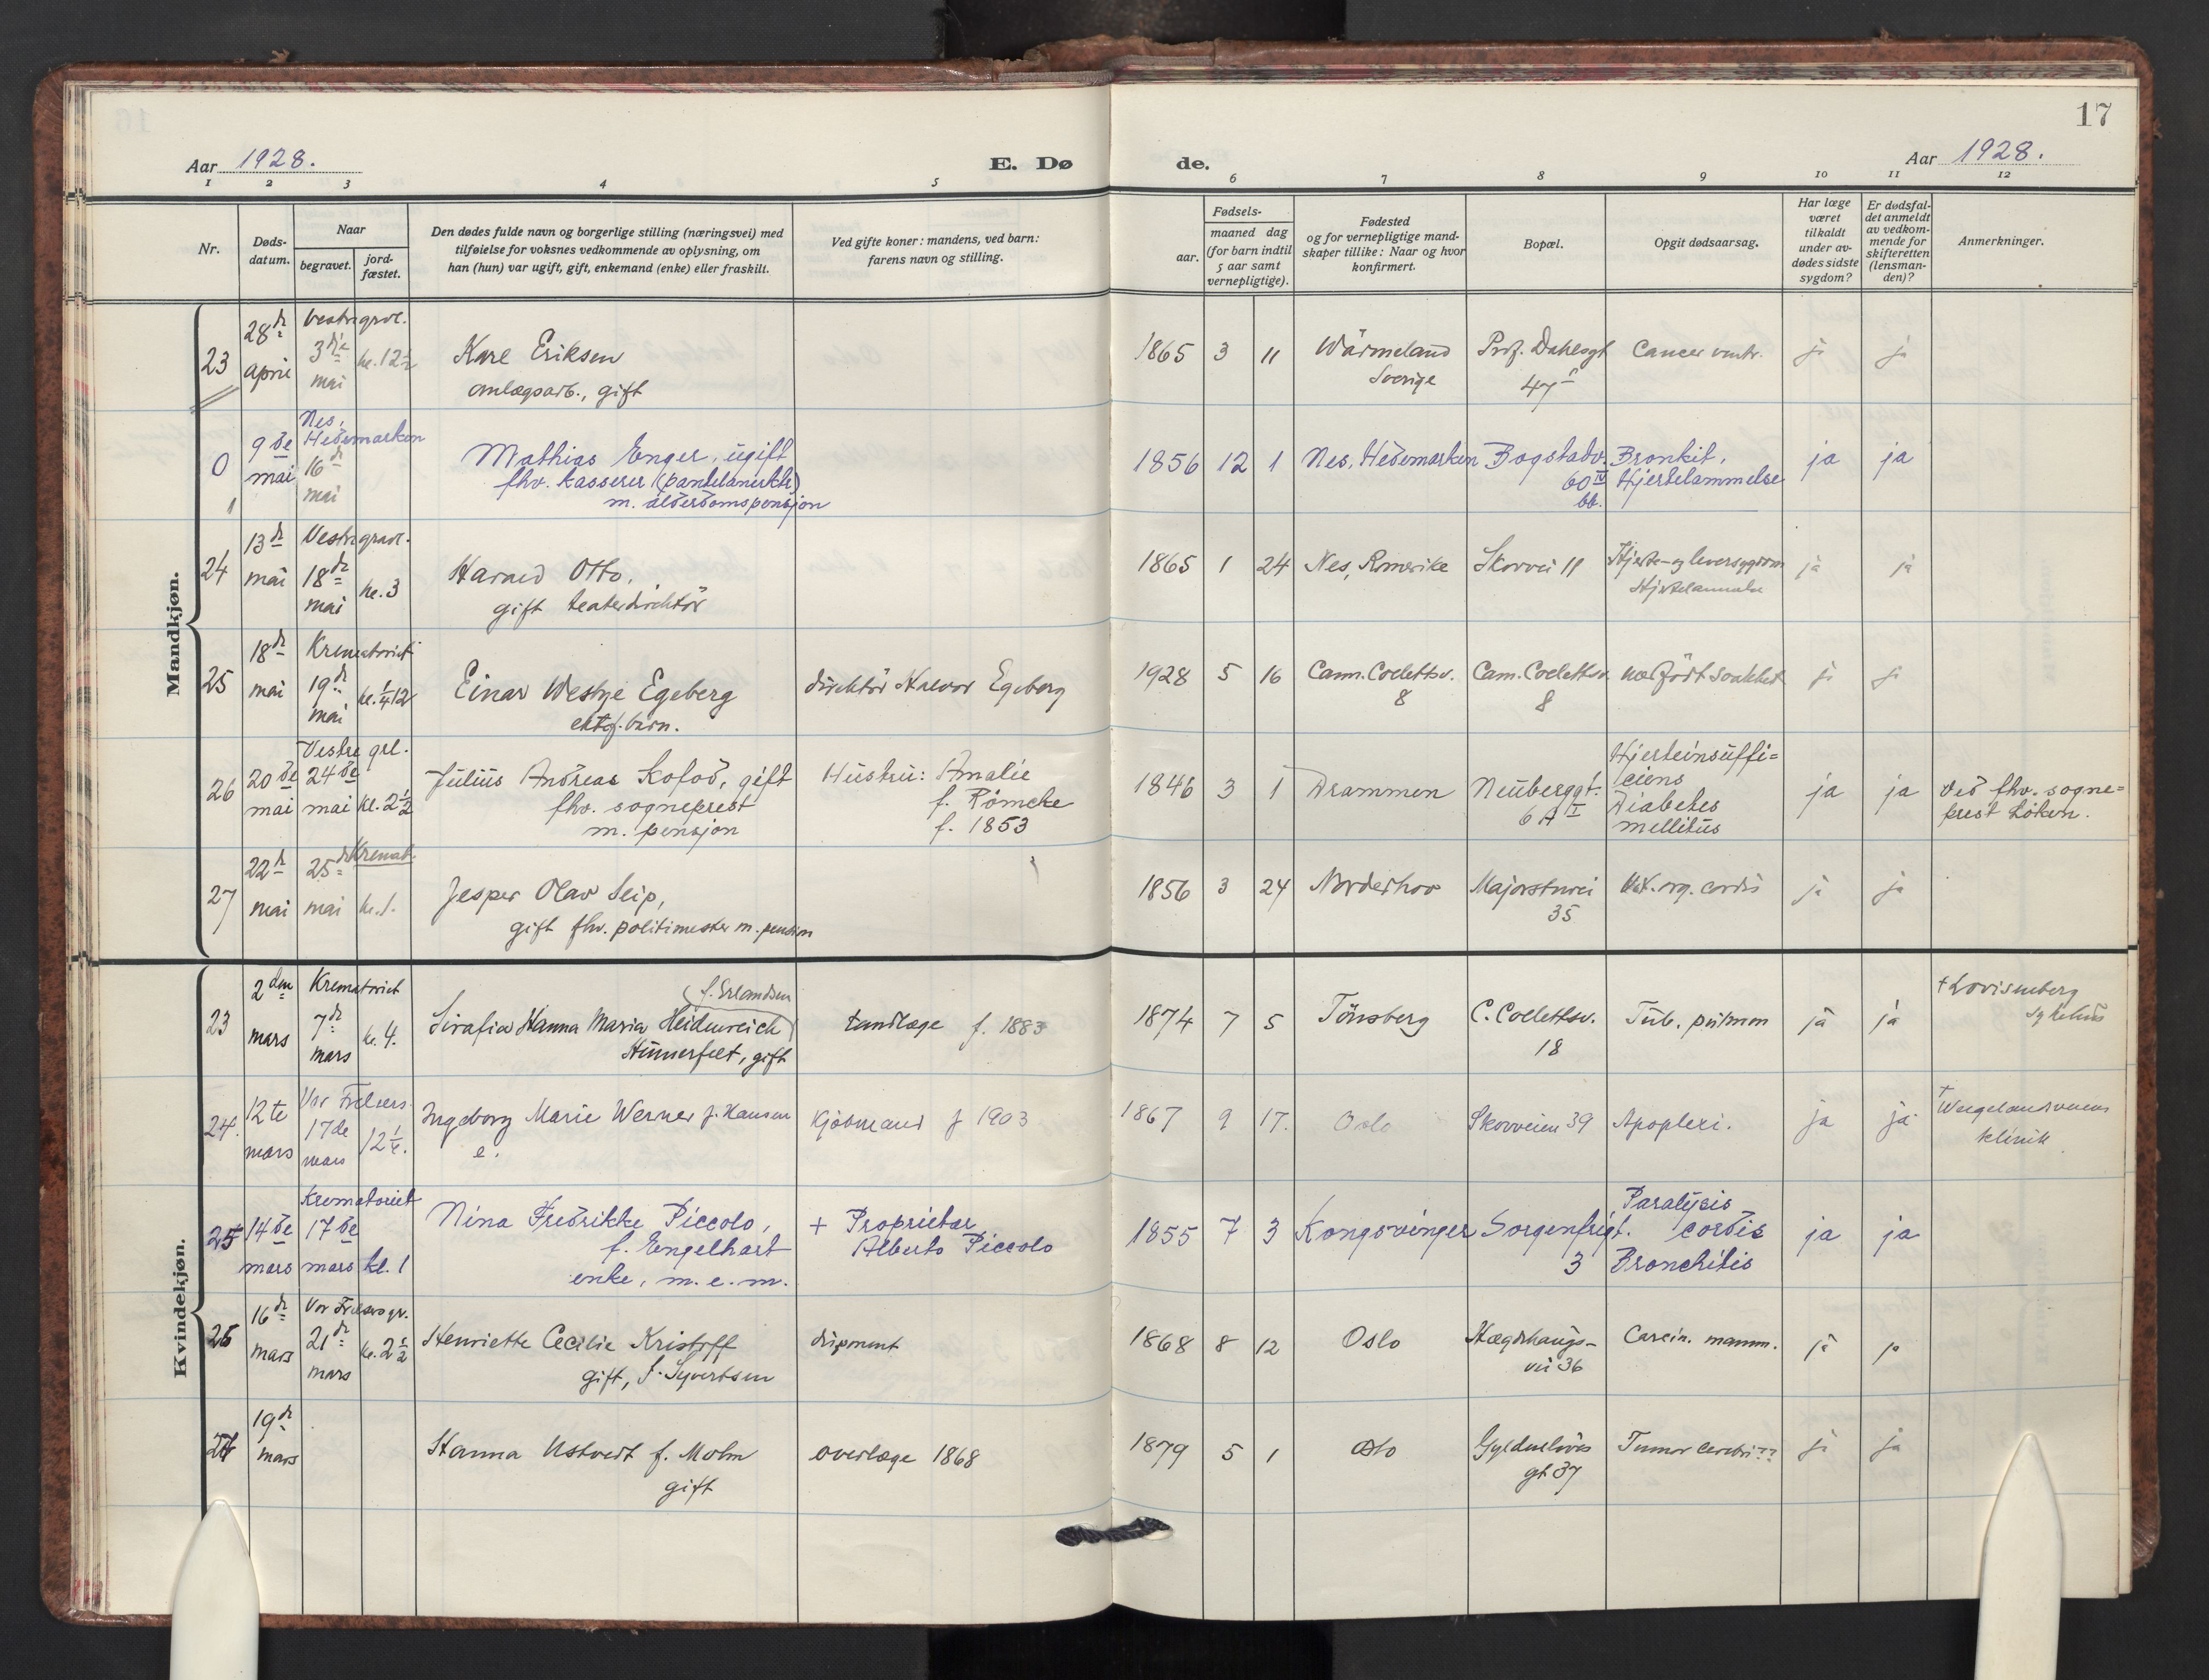 17
Aar 1928.
E. Dø
de.
Aar 1928.
1 2 3 4 5 6 7 8 9 10 11 12
Nr.
Døds-
datum.
Naar
begravet.
jord-
fæstet.
Den dødes fulde navn og borgerlige stilling (næringsvei) med
tilføielse for voksnes vedkommende av oplysning, om
han (hun) var ugift, gift, enkemand (enke) eller fraskilt.
Ved gifte koner: mandens, ved barn:
farens navn og stilling.
Fødsels-
aar.
maaned dag
(for barn indtil
5 aar samt
vernepligtige).
Fødested
og for vernepligtige mand-
skaper tillike: Naar og hvor
konfirmert.
Bopæl.
Opgit dødsaarsag.
Har læge
været
tilkaldt
under av-
dødes sidste
sygdom?
Er dødsfal-
det anmeldt
av vedkom-
mende for
skifteretten
(lensman-
den)?
Anmerkninger.
Mandkjøn.
23
28de april
Vestre grvl.
3die mai
kl. 12½
Karl Eriksen
anlægsarb., gift
1865 3 11
Wärmeland
Sverige
Prof. Dahlsgt
47
Cancer ventr.
ja ja
0
9de mai
Nes,
Hedemarken
16de mai
Mathias Enger, ugift
fhv. kasserer (pantelånerktr)
m. alderdomspensjon
1856 12 1
Nes, Hedemarken
Bogstadv.
60 IV
bb.
Bronkit,
Hjertelammelse
ja ja
24
13de mai
Vestre gravl.
18de mai
kl. 3
Harald Otto,
gift teaterdirektör
1865 1 24
Nes, Romerike
Skovvei 11
Hjerte- og leversygdom
Hjertelammelse
ja ja
25
18de mai
Krematoriet
19de mai
kl. ¼12
Einar Westye Egeberg
ektef. barn.
direktör Halvor Egeberg
1928 5 16
Cam. Collettsv.
8
Cam. Collettsv.
8
ja ja
26
20de mai
Vestre grl.
24de mai
kl. 2½
Julius Andreas Kofod, gift
fhv. sogneprest
m. pensjon
Hustru: Amalie
f. Römcke
f. 1853
1846 3 1
Drammen
Neuberggt.
6 A I
Hjerteinsuffi=
ciens
Diabetes
mellitus
ja ja
Ved fhv. sogne=
prest Löken.
27
22de mai
25de mai
Kremat.
kl. 1.
Jesper Olav Seip,
gift fhv. politimester m. pension
1856 3 24
Norderhov
Majorstuvei
35
Vit. org. cordis
ja ja
Kvindekjøn.
23
2den mars
Krematoriet
7de mars
kl. 4.
f. Erlandsen
Serafia Hanna Maria Heidenreich
Hünerfelt, gift
tandlæge f. 1883
1874 7 5
Tönsberg
C. Collettsv.
18
Tub. pulmon
ja ja
† Lovisenberg
sykehus
24.
12te mars
Vor Frelsers
17de mars
12¼.
Ingeborg Marie Werner f. Hansen
e.
Kjøbmand f 1903
1867 9 17.
Oslo
Skovveien 39
Apoplexi.
ja ja
† Wergelandsveiens
klinik
25
14de mars
Krematoriet
17de mars
kl. 1
Nina Fredrikke Piccolo,
f. Engelhart
enke, m. e. m.
+ Proprietær
Alberto Piccolo
1855 7 3
Kongsvinger
Sorgenfrigt.
3
Paralysis
cordis
Bronchitis
ja ja
26
16de mars
Vor Frelsers gr.
21de mars
kl. 2½
Henriette Cecilie Kristoff
gift, f. Syvertsen
disponent
1868 8 12
Oslo
Hægdehaugs-
vei 36
Carcin. mamm.
ja ja
27
19de mars
Hanna Ustvedt f. Molm
gift
overlæge 1868
1879 5 1
Oslo
Gyldenlöves
gt 37
Tumor cerebri??
ja ja